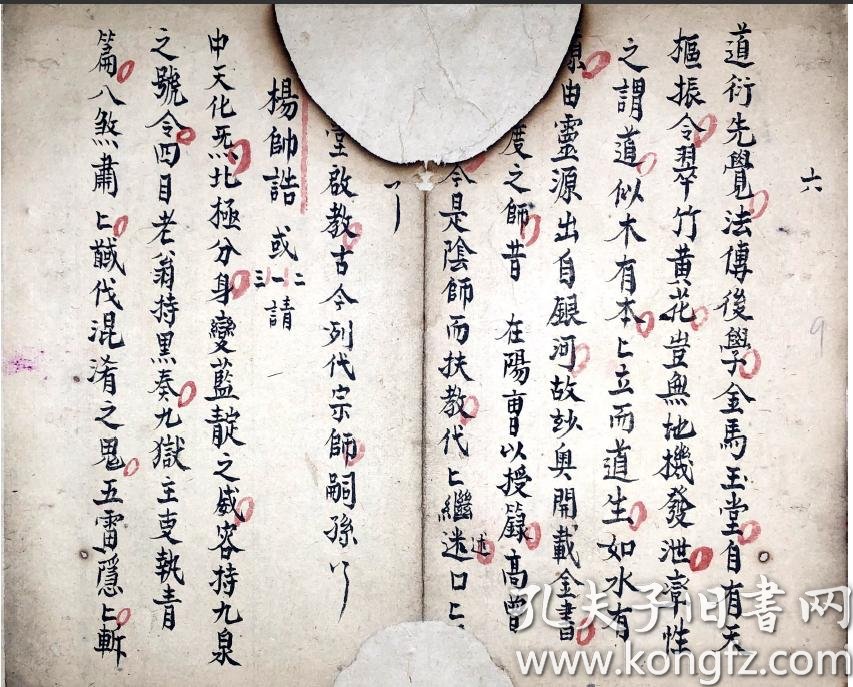 六
道衍先覺法傳後學金馬玉堂自有天
樞振令翠竹黃花豈無地機發泄性
之謂道似木有本〻立而道生如水有
源由靈源出自銀河故玅奥開載金書
度之師昔 在陽曹以授籙高曾
今是陰師而扶教代〻繼迷述口〻
堂啟教古今列代宗師嗣孫
楊帥誥 或一二三請
中天化炁北極分身變藍靛之威容持九泉
之號令四目老翁持黑奏九獄主吏執青
篇八煞肅〻馘伐混淆之鬼五雷隱〻斬
9
孔夫子旧书网
www.kongfz.com